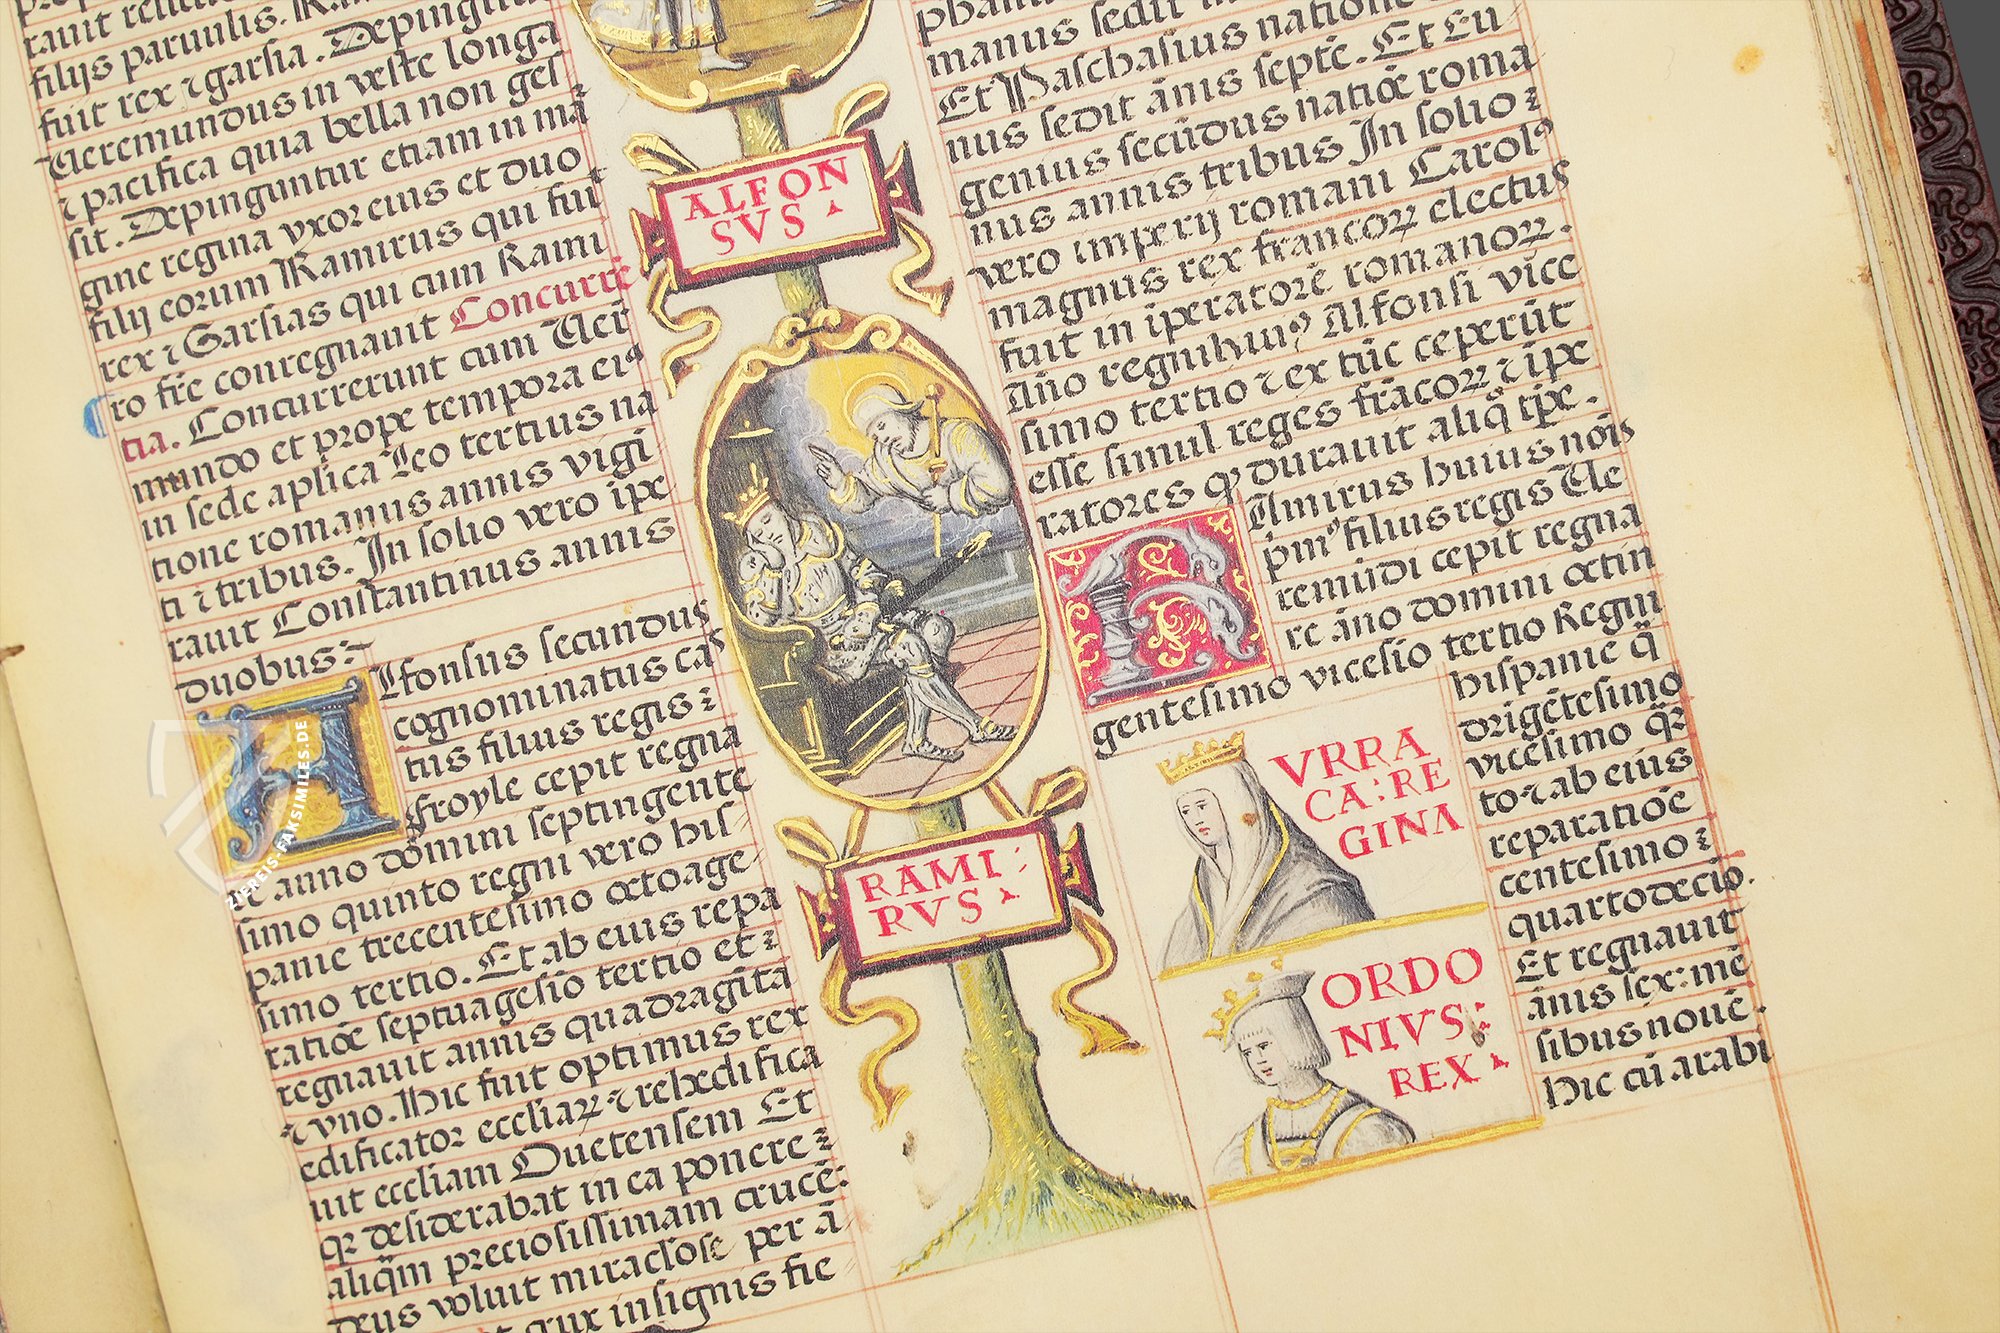 rauit
filijs paruulis. Rami
fuit rex ⁊ garsia. Depingitur
Ueremundus in veste longa
⁊ pacifica quia bella non ges
sit. Depinguntur etiam in mā
gine regina vxor eius et duo
filij eorum Ramirus qui fuit
rex ⁊ Garsias qui cum Rami
ro fre conregnauit Concurrē
tia. Concurrerunt cum Uer
mundo et prope tempora eiꝰ
in sede aplica Leo tertius na
tione romanus annis vigi
ti ⁊ tribus. In solio vero ipe
rauit Constantinus annis
duobus:~
Alfonsus secundus
cognominatus cas
tus filius regis:
froyle cepit regna
re anno domini septingente
simo quinto regni vero his-
panie trecentesimo octoage
simo tertio. Et ab eius repa
ratiōe septuagesio tertio et:
regnauit annis quadragīta
⁊ vno. Hic fuit optimus rex
edificator eccliaꝝ ⁊ rehedifica
uit eccliam Ouetensem Et
qꝛ desiderabat in ea ponere:
aliqm̄ preciosissimam crucē:
deus voluit miraclose per ā
crux insignis fie
ALFON
SVS
RAMI
RVS
manus sedit
Et Paschasius natione
nus sedit ānis septē. Et Eu
genius secūdus natiōe roma
nus annis tribus In solio:
vero imperij romani Carolꝰ
magnus rex francoꝝ electus
fuit in īperatorē romanoꝝ.
Año regni huiꝰ Alfonsi vice
simo tertio ⁊ ex tūc ceperūt
esse simul reges frācoꝝ ⁊ ipe
ratores qd durauit aliq̄ tpe.
Ramirus huius nois
pmꝰ filius regis Ue
remūdi cepit regna
re āno domini octin
gentesimo vicesio tertio Regni
hispanie q̄
drigētesimo
vicesimo q̄r
to ⁊ ab eius
reparatiōe
centesimo:
quartodecīo.
Et regnauit
ānis sex: mē
sibus nouē.
Hic cū arabi
VRRA
CA: RE
GINA
ORDO
NIVS:
REX
ZIEREIS-FAKSIMILES.DE